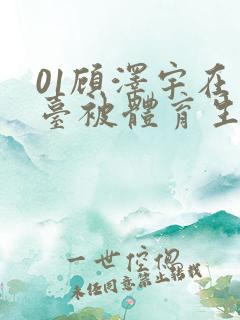 01顾澤宇在
臺被體育生
一世倥偬
未经同意禁止转载